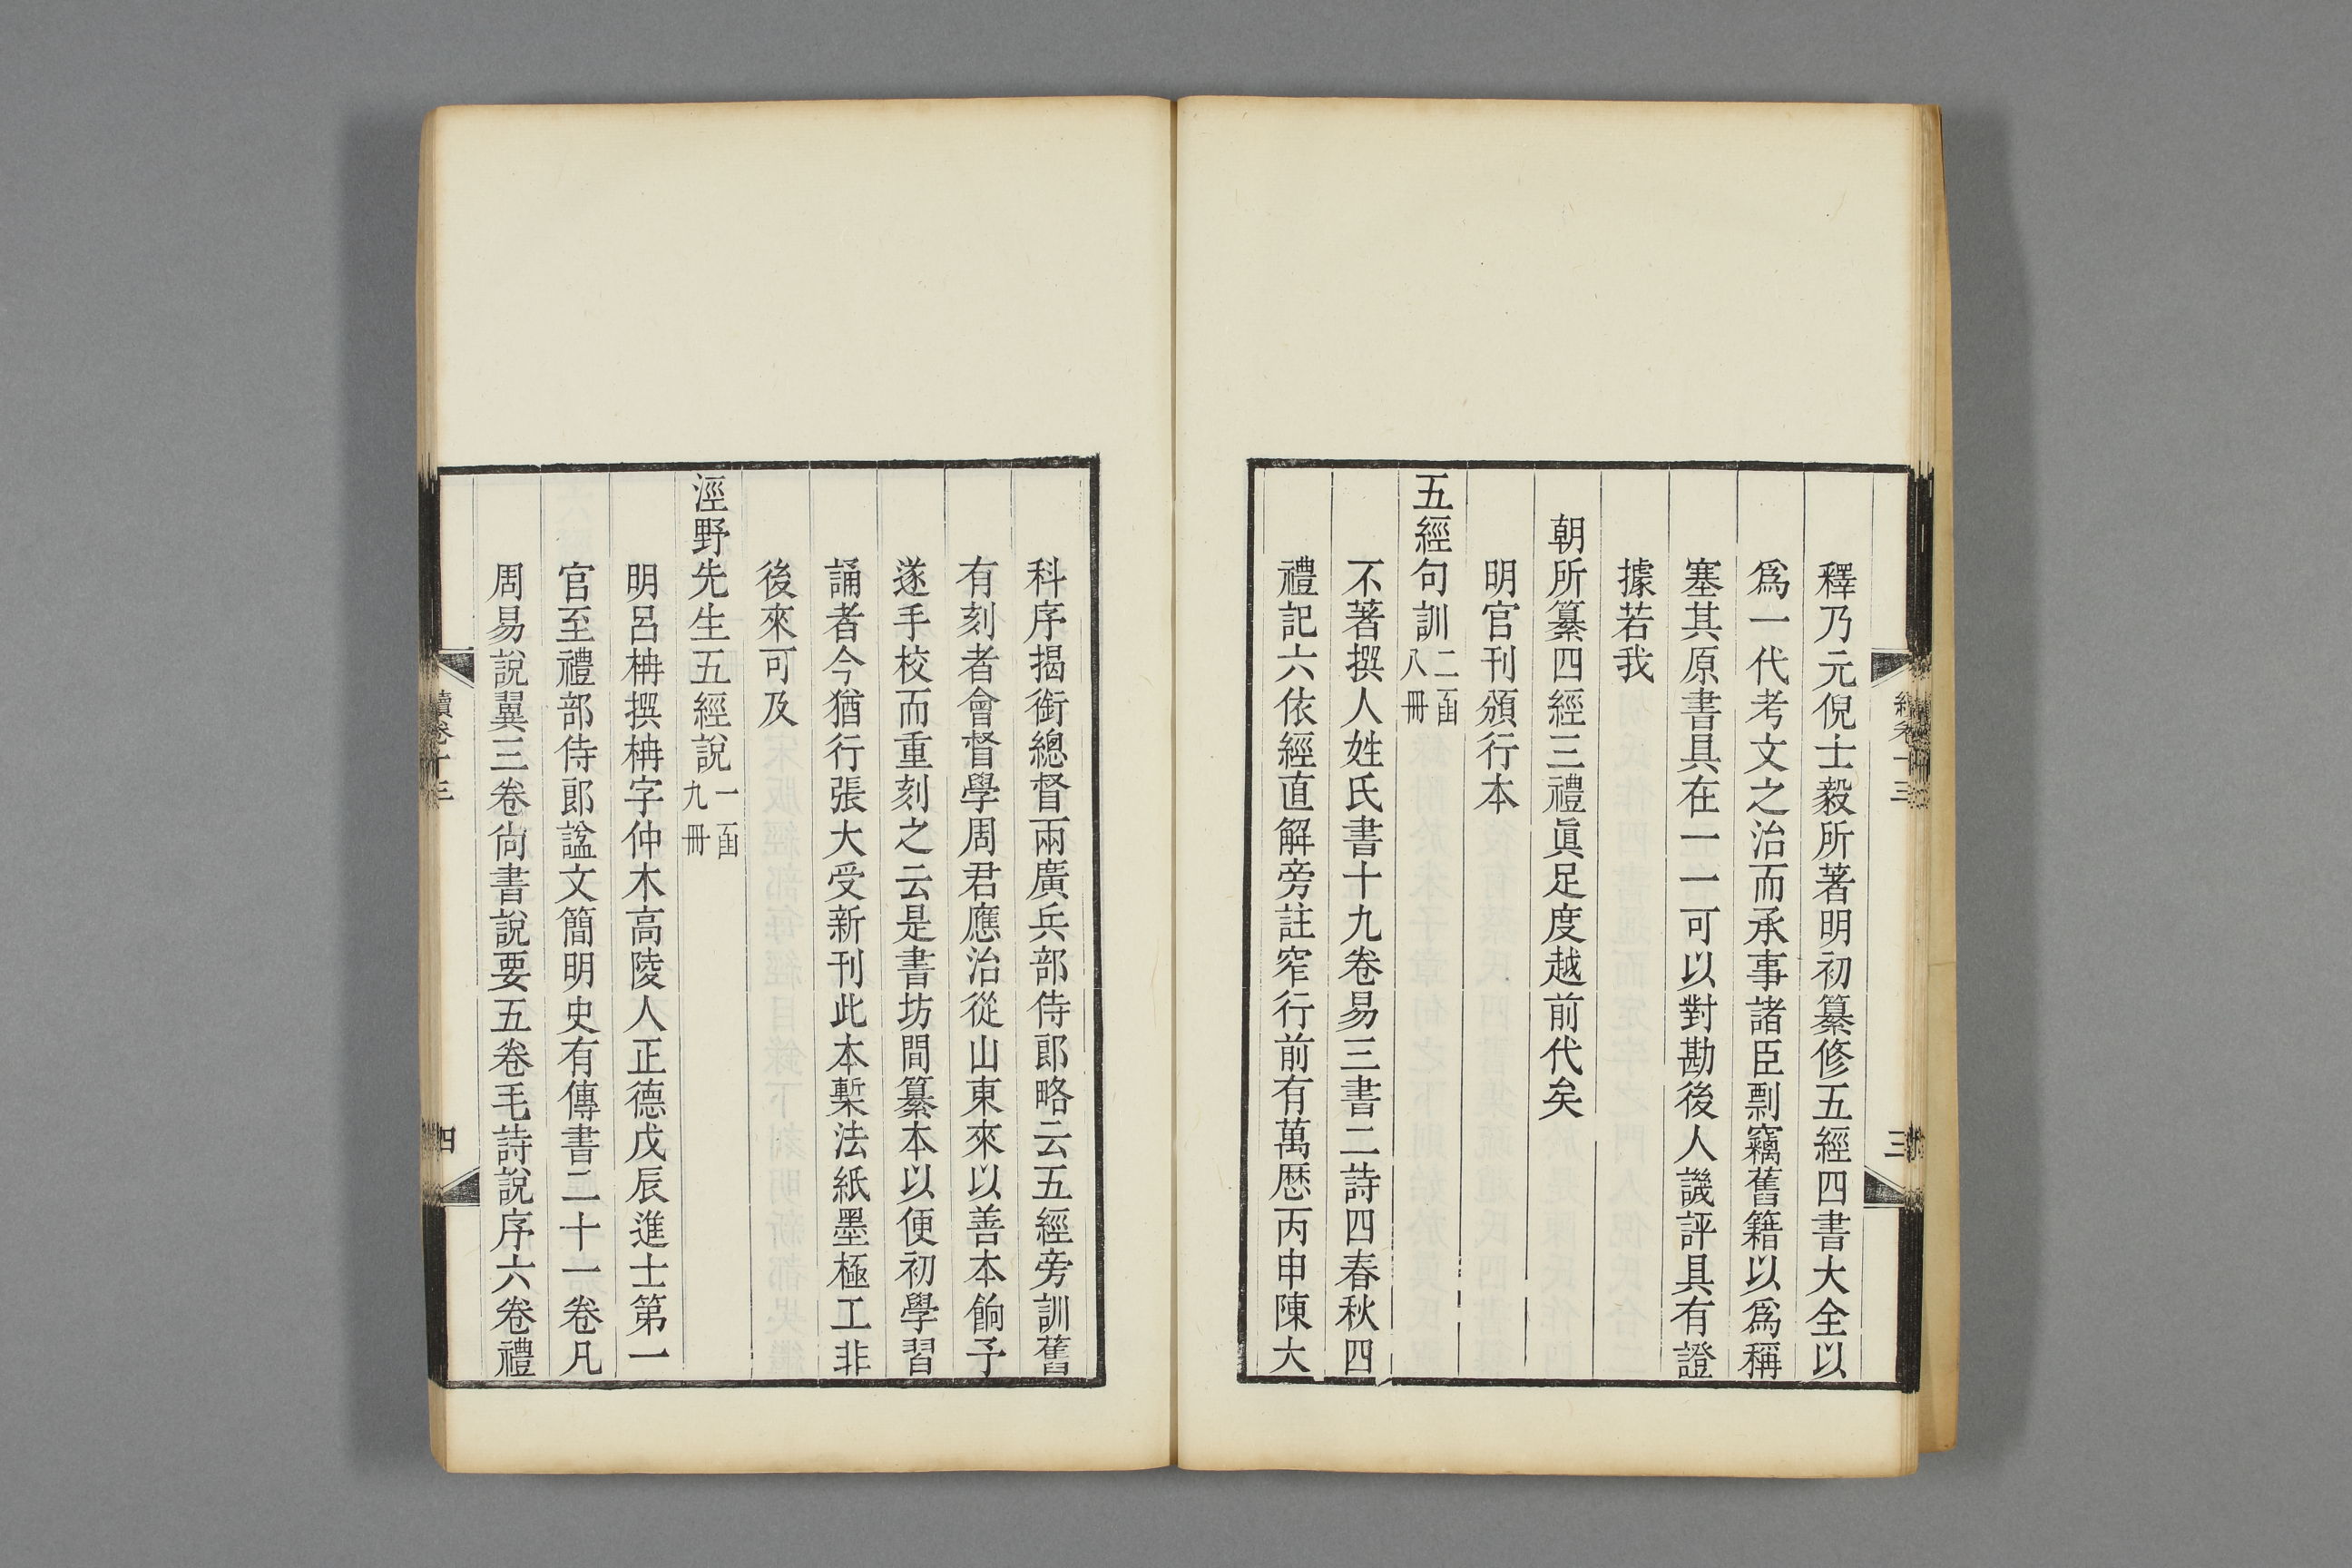 釋乃元倪士毅所著明初纂修五經四書大全以
爲一代考文之治而承事諸臣剽竊舊籍以爲稱
塞其原書具在一一可以對勘後人譏評具有證
據若我
朝所纂四經三禮眞足度越前代矣
明官刊頒行本
五經句訓二函八冊
不著撰人姓氏書十九卷易三書二詩四春秋四
禮記六依經直解旁註窄行前有萬歷丙申陳大
科序揭銜總督兩廣兵部侍郎略云五經旁訓舊
有刻者會督學周君應治從山東來以善本餉予
遂手校而重刻之云是書坊間纂本以便初學習
誦者今猶行張大受新刊此本槧法紙墨極工非
後來可及
涇野先生五經說一函九冊
明呂柟撰柟字仲木高陵人正德戊辰進士第一
官至禮部侍郎諡文簡明史有傳書二十一卷凡
周易說翼三卷尙書說要五卷毛詩說序六卷禮
續卷十三
四